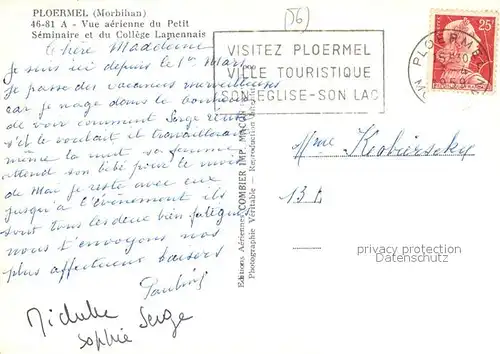 PLOERMEL (Morbihan)
46-81 A - Vue aérienne du Petit
Séminaire et du Collège Lamennais
(56)
VISITEZ PLOERMEL
VILLE TOURISTIQUE
SON EGLISE-SON LAC
25F
PLOERMEL
Chère Madeleine
je suis ici depuis le 1er Mars
je passe des vacances merveilleuses
car je nage dans le bonheur
de voir comment Serge
s'il le voulait il travaillerait
même la nuit sa femme
attend son bébé pour le mois
de Mai je reste avec eux
jusqu'à l'événement ils
sont tous les deux bien fatigués
nous t'envoyons nos
plus affectueux baisers
Pauline
Michelle
Serge
Sophie
Editions Aériennes COMBIER IMP. MACON
Photographie Véritable - Reproduction Interdite
Mme
13
privacy protection
Datenschutz